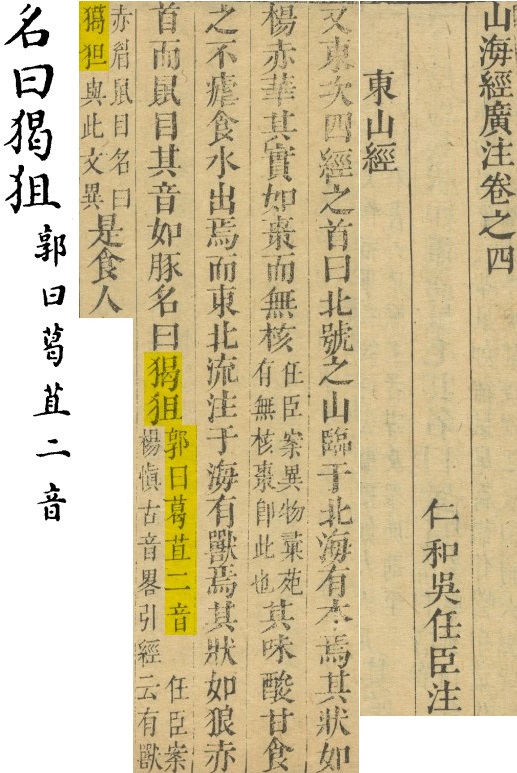 山海經廣注卷之四
仁和吳任臣注
東山經
又東次四經之首曰北號之山臨于北海有木焉其狀如
楊赤華其實如棗而無核任臣案異物彙苑有無核棗卽此也其味酸甘食
之不瘧食水出焉而東北流注于海有獸焉其狀如狼赤
首而鼠目其音如豚名曰猲狙郭曰葛苴二音 任臣案楊慎古音畧引經云有獸
赤眉鼠目名曰獦狚與此文異是食人
名曰猲狙郭曰葛苴二音